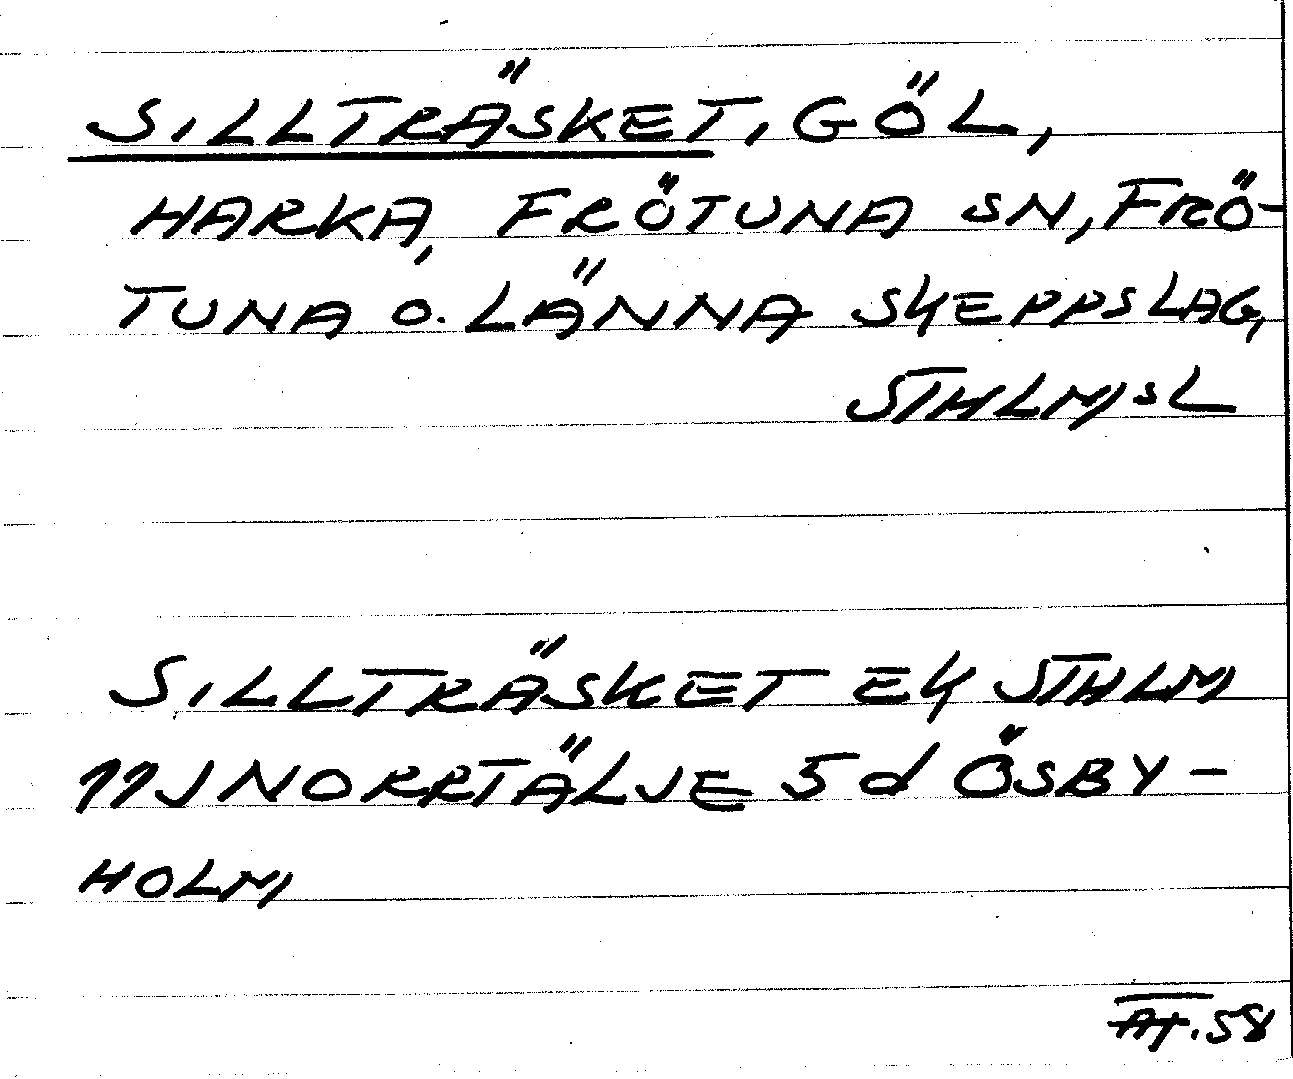 SILLTRÄSKET, GÖL,
HARKA, FRÖTUNA SN, FRÖ-
TUNA O. LÄNNA SKEPPSLAG,
STHLMSL
SILLTRÄSKET EK STHLM
11J NORRTÄLJE 5d ÖSBY-
HOLM
.58